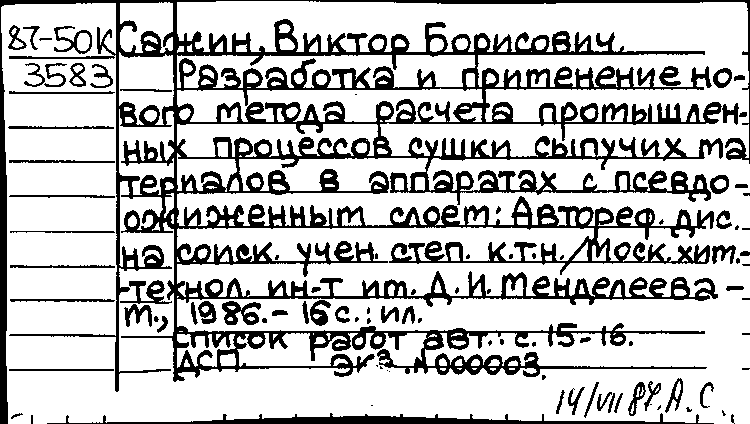 87-50К Сажин, Виктор Борисович.
3583 Разработка и применение но-
вого метода расчета промышлен-
ных процессов сушки сыпучих ма
териалов в аппаратах с псевдо-
ожиженным слоем: Автореф. дис.
на соиск. учен. степ. к.т.н./Моск. хим.-
-технол. ин-т им. Д. И. Менделеева -
М., 1986.- 16 с.: ил.
Список работ авт.: с. 15-16.
ДСП. Экз. N000003.
14/VII 87. А. С.